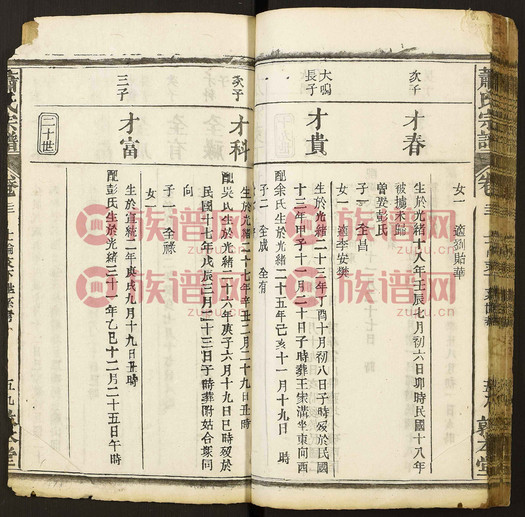 蕭氏宗譜
卷三
敦本堂
女一 適劉貽華
次子 才春
生於光緒十八年壬辰七月初六日卯時民國十八年
被擄未歸
曾娶彭氏
子一 全昌
女一 適李安樂
大鳴長子 才貴
生於光緒二十三年丁酉十月初八日子時歿於民國
十三年甲子十一月二十日子時葬王家溝坐東向西
配余氏生於光緒二十五年己亥十一月十九日 時
子二 全成 全有
次子 才科
生於光緒二十七年辛丑二月二十九日丑時
配吳氏生於光緒二十六年庚子六月十九日巳時歿於
民國十七年戊辰三月二十三日子時葬附姑合塚同
向
子一 全祿
女一
三子 才富
生於宣統二年庚戌九月十九日丑時
配彭氏生於光緒三十一年乙巳十二月二十五日午時
二十世
蕭氏宗譜
卷三
五九 敦本堂
族谱网
zupu.cn